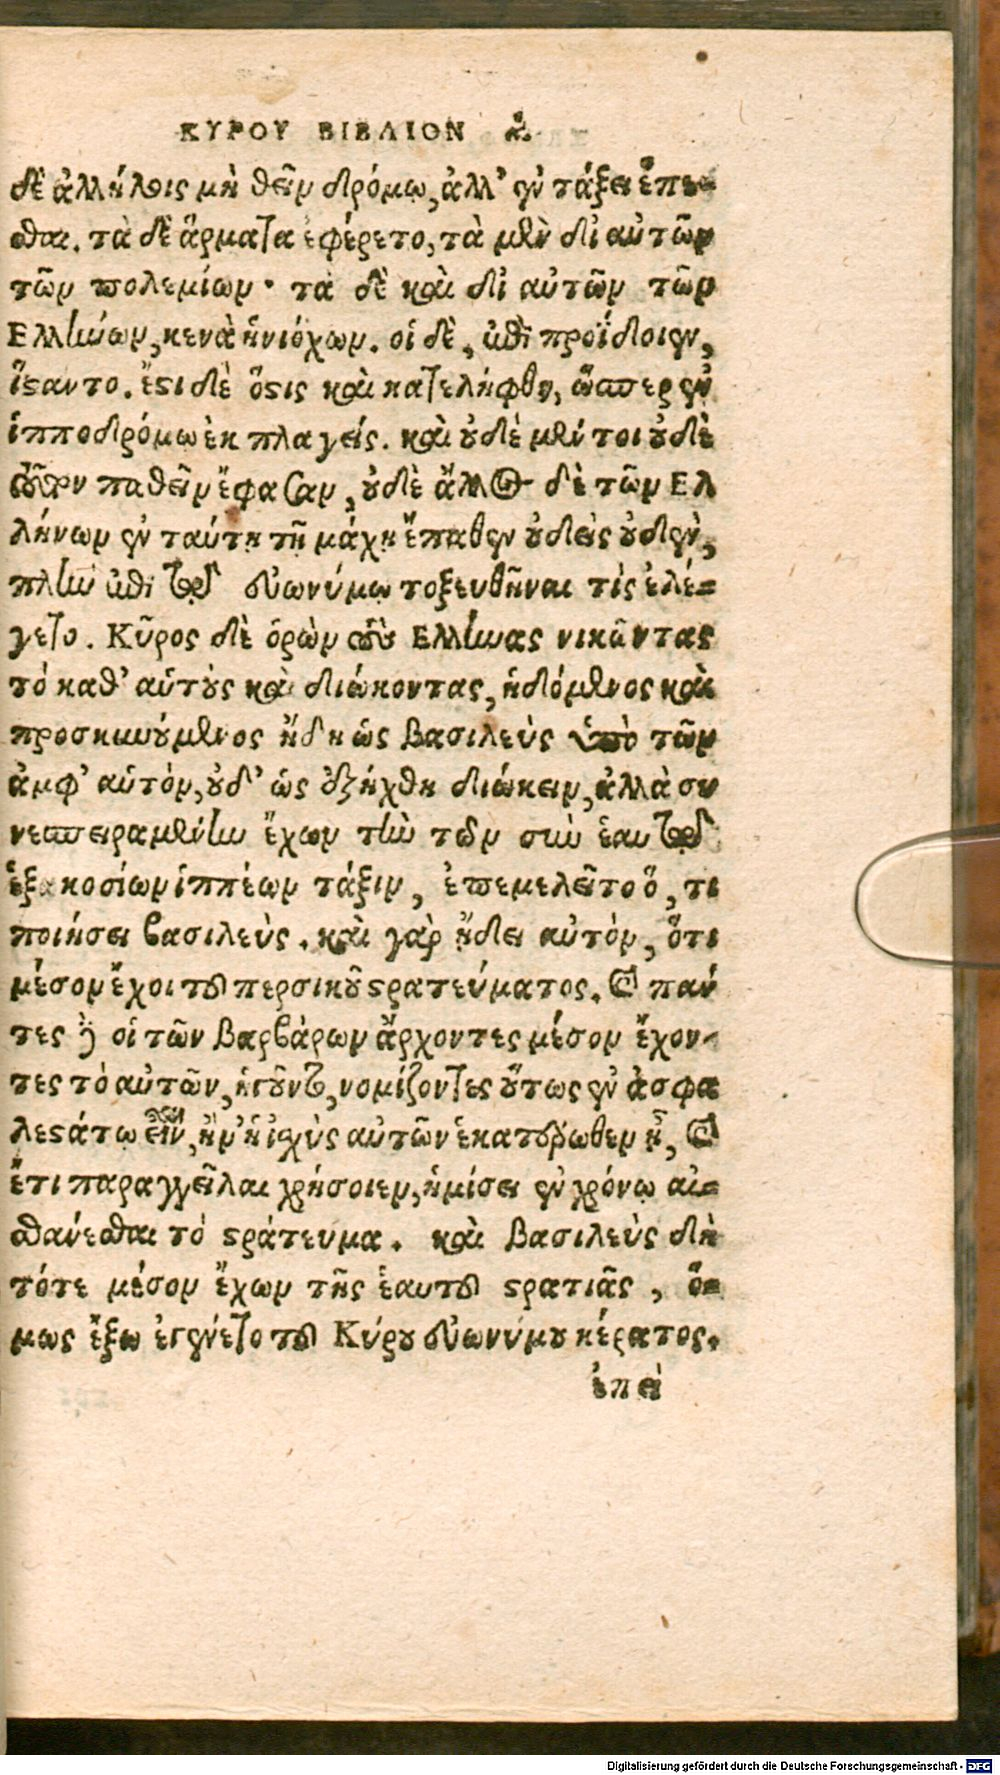 ΚΥΡΟΥ ΒΙΒΛΙΟΝ α.
δὲ ἀλλήλοις μὴ θεῖν δρόμῳ, ἀλλ' ἐν τάξει ἕπε-
σθαι. τὰ δὲ ἅρματα ἐφέρετο, τὰ μὲν δι αὐτῶν
τῶν πολεμίων· τὰ δὲ καὶ δι αὐτῶν τῶν
Ελλήνων, κενὰ ἡνιόχων. οἱ δὲ, ἐπεὶ προΐδοιεν,
ἵσταντο. ἔστι δὲ ὅστις καὶ κατελήφθη, ὥσπερ ἐν
ἱπποδρόμω ἐκπλαγείς. καὶ οὐδὲ μέντοι οὐδὲ
τοῦτον παθεῖν ἔφασαν, οὐδὲ ἄλλος δὲ τῶν Ελ
λήνων ἐν ταύτῃ τῇ μάχῃ ἔπαθεν οὐδεὶς οὐδὲν,
πλὴν ἐπὶ τῷ εὐωνύμῳ τοξευθῆναι τὶς ἐλέ-
γετο. Κῦρος δὲ ὁρὼν τοὺς Ελληνας νικῶντας
τὸ καθ' αὑτοὺς καὶ διώκοντας, ἡδόμενος καὶ
προσκυνούμενος ἤδη ὡς βασιλεὺς ὑπὸ τῶν
ἀμφ' αὑτὸν, οὐδ' ὡς ἐξήχθη διώκειν, ἀλλὰ συ
νεσπειραμένην ἔχων τὴν τῶν σὺν ἑαυτῷ
ἑξακοσίων ἱππέων τάξιν, ἐπεμελεῖτο ὅ, τι
ποιήσει βασιλεὺς. καὶ γὰρ ᾔδει αὐτὸν, ὅτι
μέσον ἔχοι τοῦ περσικοῦ στρατεύματος. καὶ πάν
τες δὲ οἱ τῶν βαρβάρων ἄρχοντες μέσον ἔχον-
τες τὸ αὑτῶν, ἡγοῦνται, νομίζοντες οὕτως ἐν ἀσφα
λεστάτω εἶναι, ἢν ἡ ἰσχὺς αὐτῶν ἑκατέρωθεν ᾖ, καὶ
ἔτι παραγγεῖλαι χρήσοιεν, ἡμίσει ἐν χρόνῳ αἰ-
σθάνεσθαι τὸ στράτευμα. καὶ βασιλεὺς δὴ
τότε μέσον ἔχων τῆς ἑαυτοῦ στρατιᾶς, ὅ-
μως ἔξω ἐγένετο τοῦ Κύρου εὐωνύμου κέρατος.
ἐπεὶ
Digitalisierung gefördert durch die Deutsche Forschungsgemeinschaft - DFG